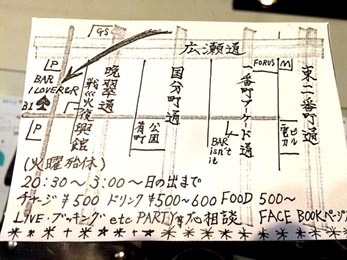 GS
広瀬通
P
BAR
I LOVER CR
B1
P
晩翠通
戦災復興館
国分町通
公園
肴町
一番町アーケード通
BAR
isn't
it
FORUS
M
東二番町通
ビル
(火曜定休)
20:30〜3:00〜日の出まで
チャージ¥500 ドリンク¥500〜600 FOOD 500〜
LIVE・ブッキング etc PARTY等応相談 FACE BOOKページ